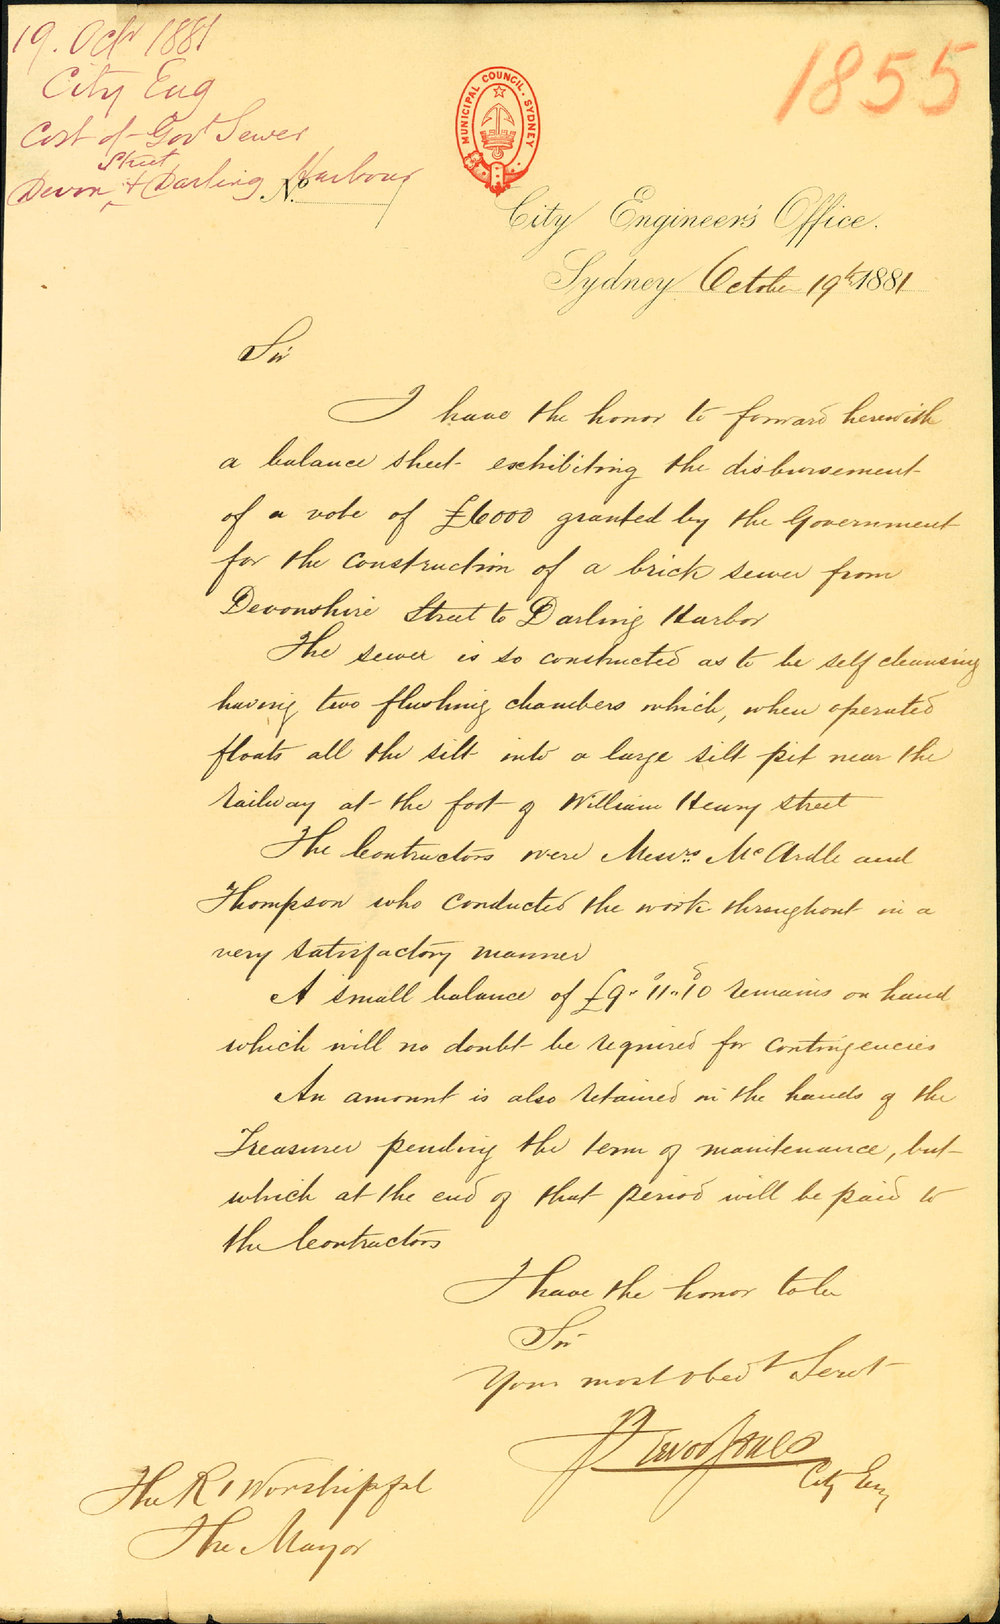 19. Octr 1881
City Eng
Cost of Govt Sewer
Street
Devon & Darling Harbour
No.
1855
MUNICIPAL COUNCIL. SYDNEY
City Engineer's Office.
Sydney October 19th 1881
Sir
I have the honor to forward herewith
a balance sheet exhibiting the disbursement
of a vote of £6000 granted by the Government
for the construction of a brick sewer from
Devonshire Street to Darling Harbor
The sewer is so constructed as to be self cleansing
having two flushing chambers which, when operated
floats all the silt into a large silt pit near the
railway at the foot of William Henry street
The Contractors were Messrs McArdle and
Thompson who conducted the work throughout in a
very satisfactory manner
A small balance of £9-11s-10d remains on hand
which will no doubt be required for contingencies
An amount is also retained in the hands of the
Treasurer pending the term of maintenance, but
which at the end of that period will be paid to
the Contractors
I have the honor to be
Sir
Your most obedt Servt
City Eng
The Rt Worshipful
The Mayor